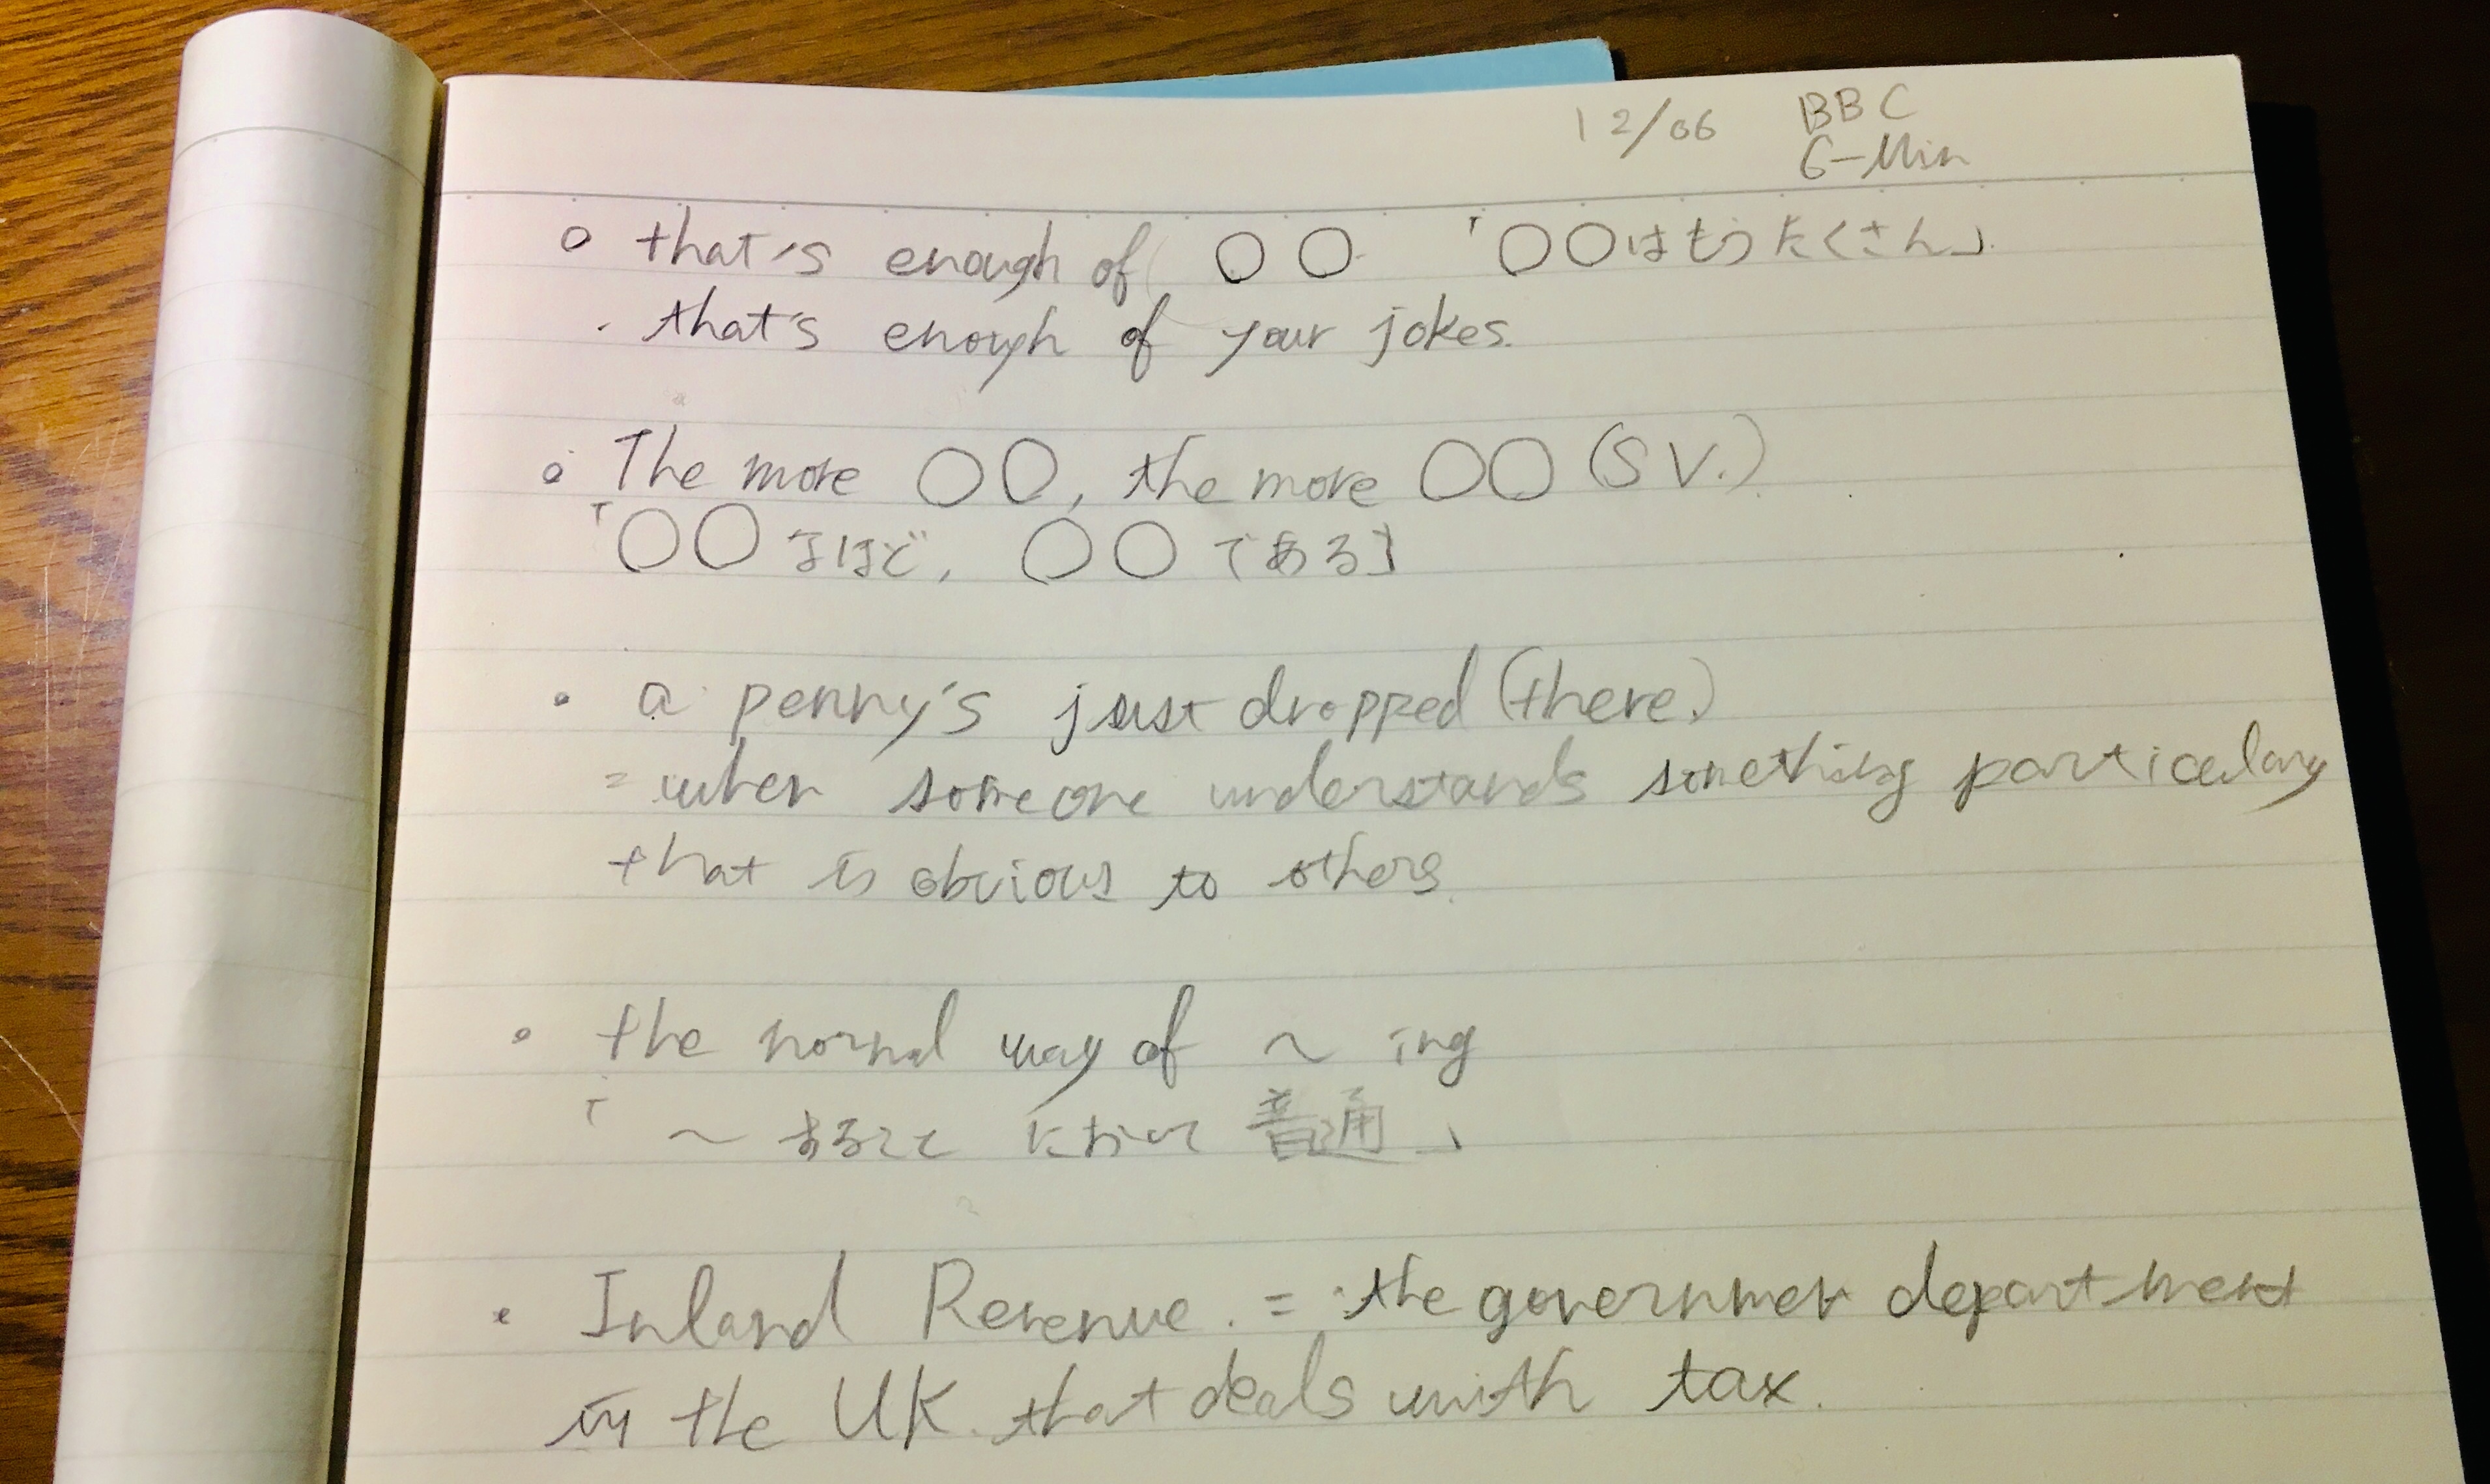 12/06 BBC
6-Min
○ that's enough of ○○ 「○○はもうたくさん」
・that's enough of your jokes.
○ The more ○○, the more ○○ (S V.)
「○○なほど, ○○である」
・a penny's just dropped (there.)
= when someone understands something particulary
that is obvious to others.
・the normal way of ~ ing
「~することにおいて普通」
・Inland Revenue. = the governmen department
in the UK. that deals with tax.